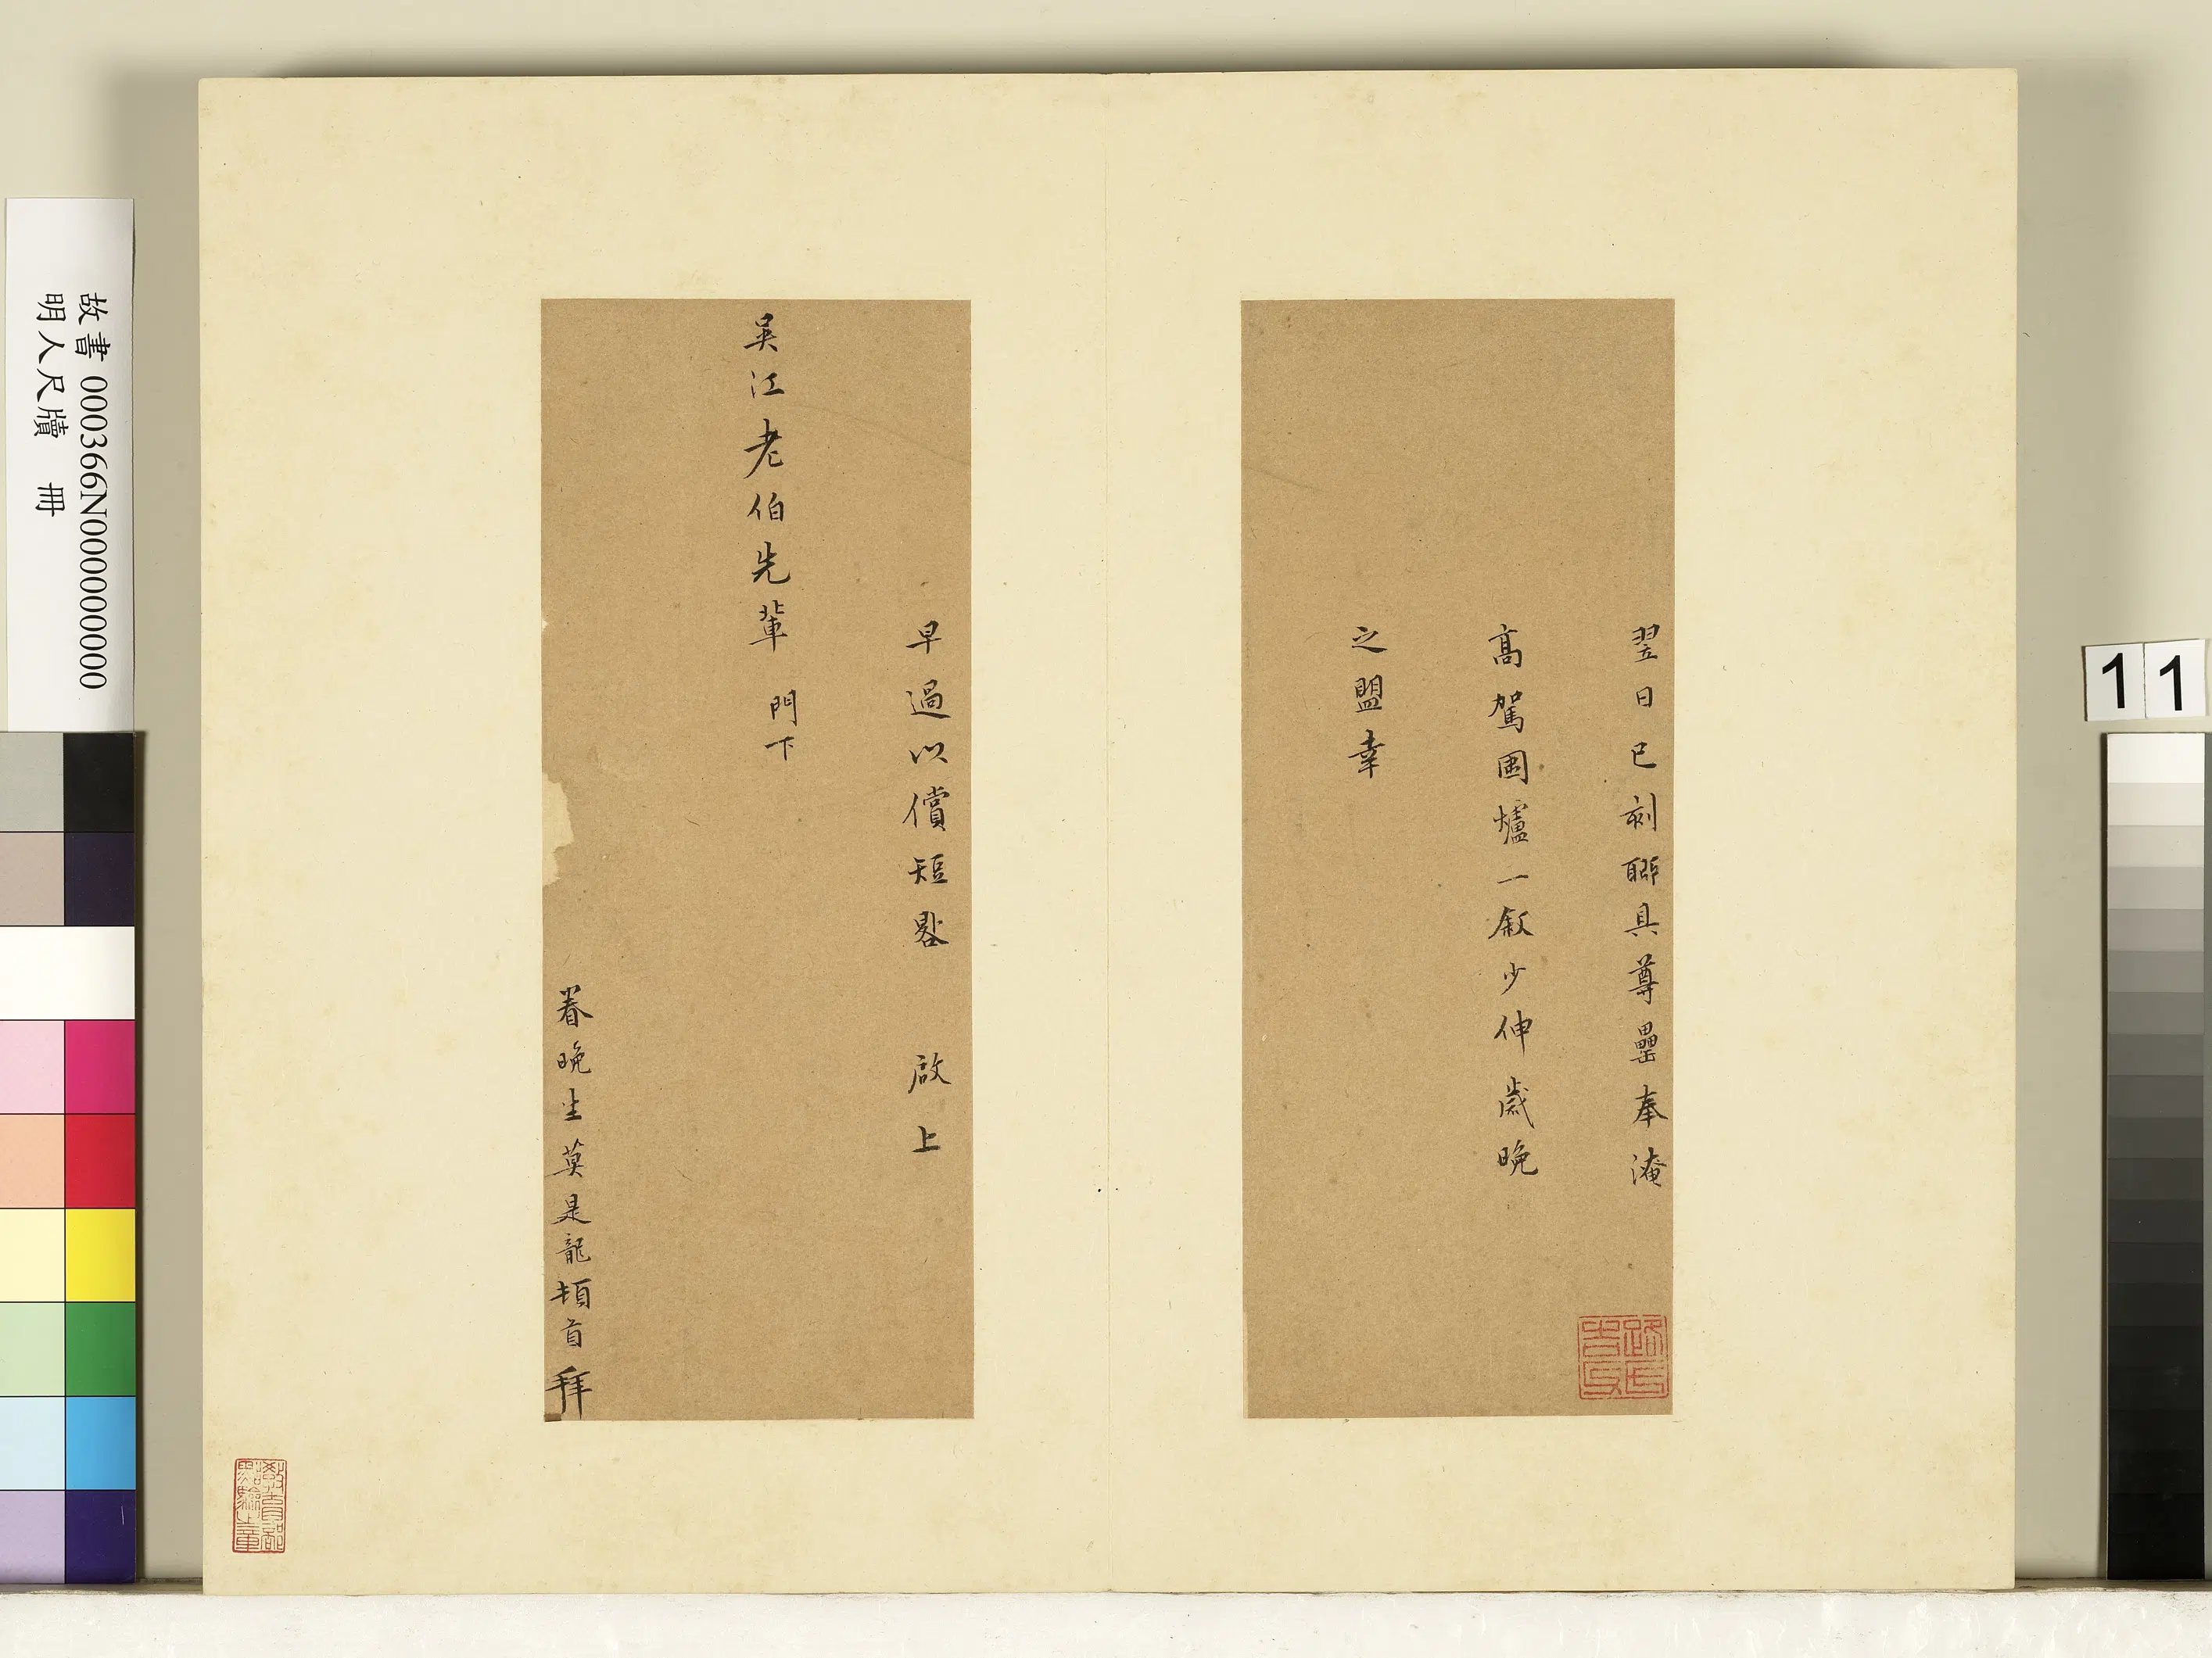 翌日已刻聊具尊罍奉淹
高駕圍爐一敘少伸歲晚
之盟幸
早過以償短晷　啟上
吳江老伯先輩　門下
眷晚生莫是龍頓首拜
教育部點驗之章
故書 000366N000000000
明人尺牘　冊
11